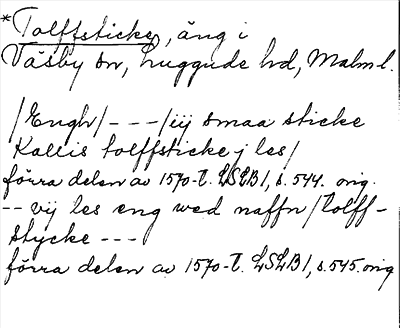 *Tolffsticke, äng i
Väsby sn, Luggude hd, Malm l.
/Engh/ --- /iij smaa sticke
Kallis tolffsticke j les/
förra delen av 1570-t. LSLB1, s. 544. orig.
-- vij les eng wed naffn /tolff-
stycke ---
förra delen av 1570-t. LSLB1, s. 545. orig